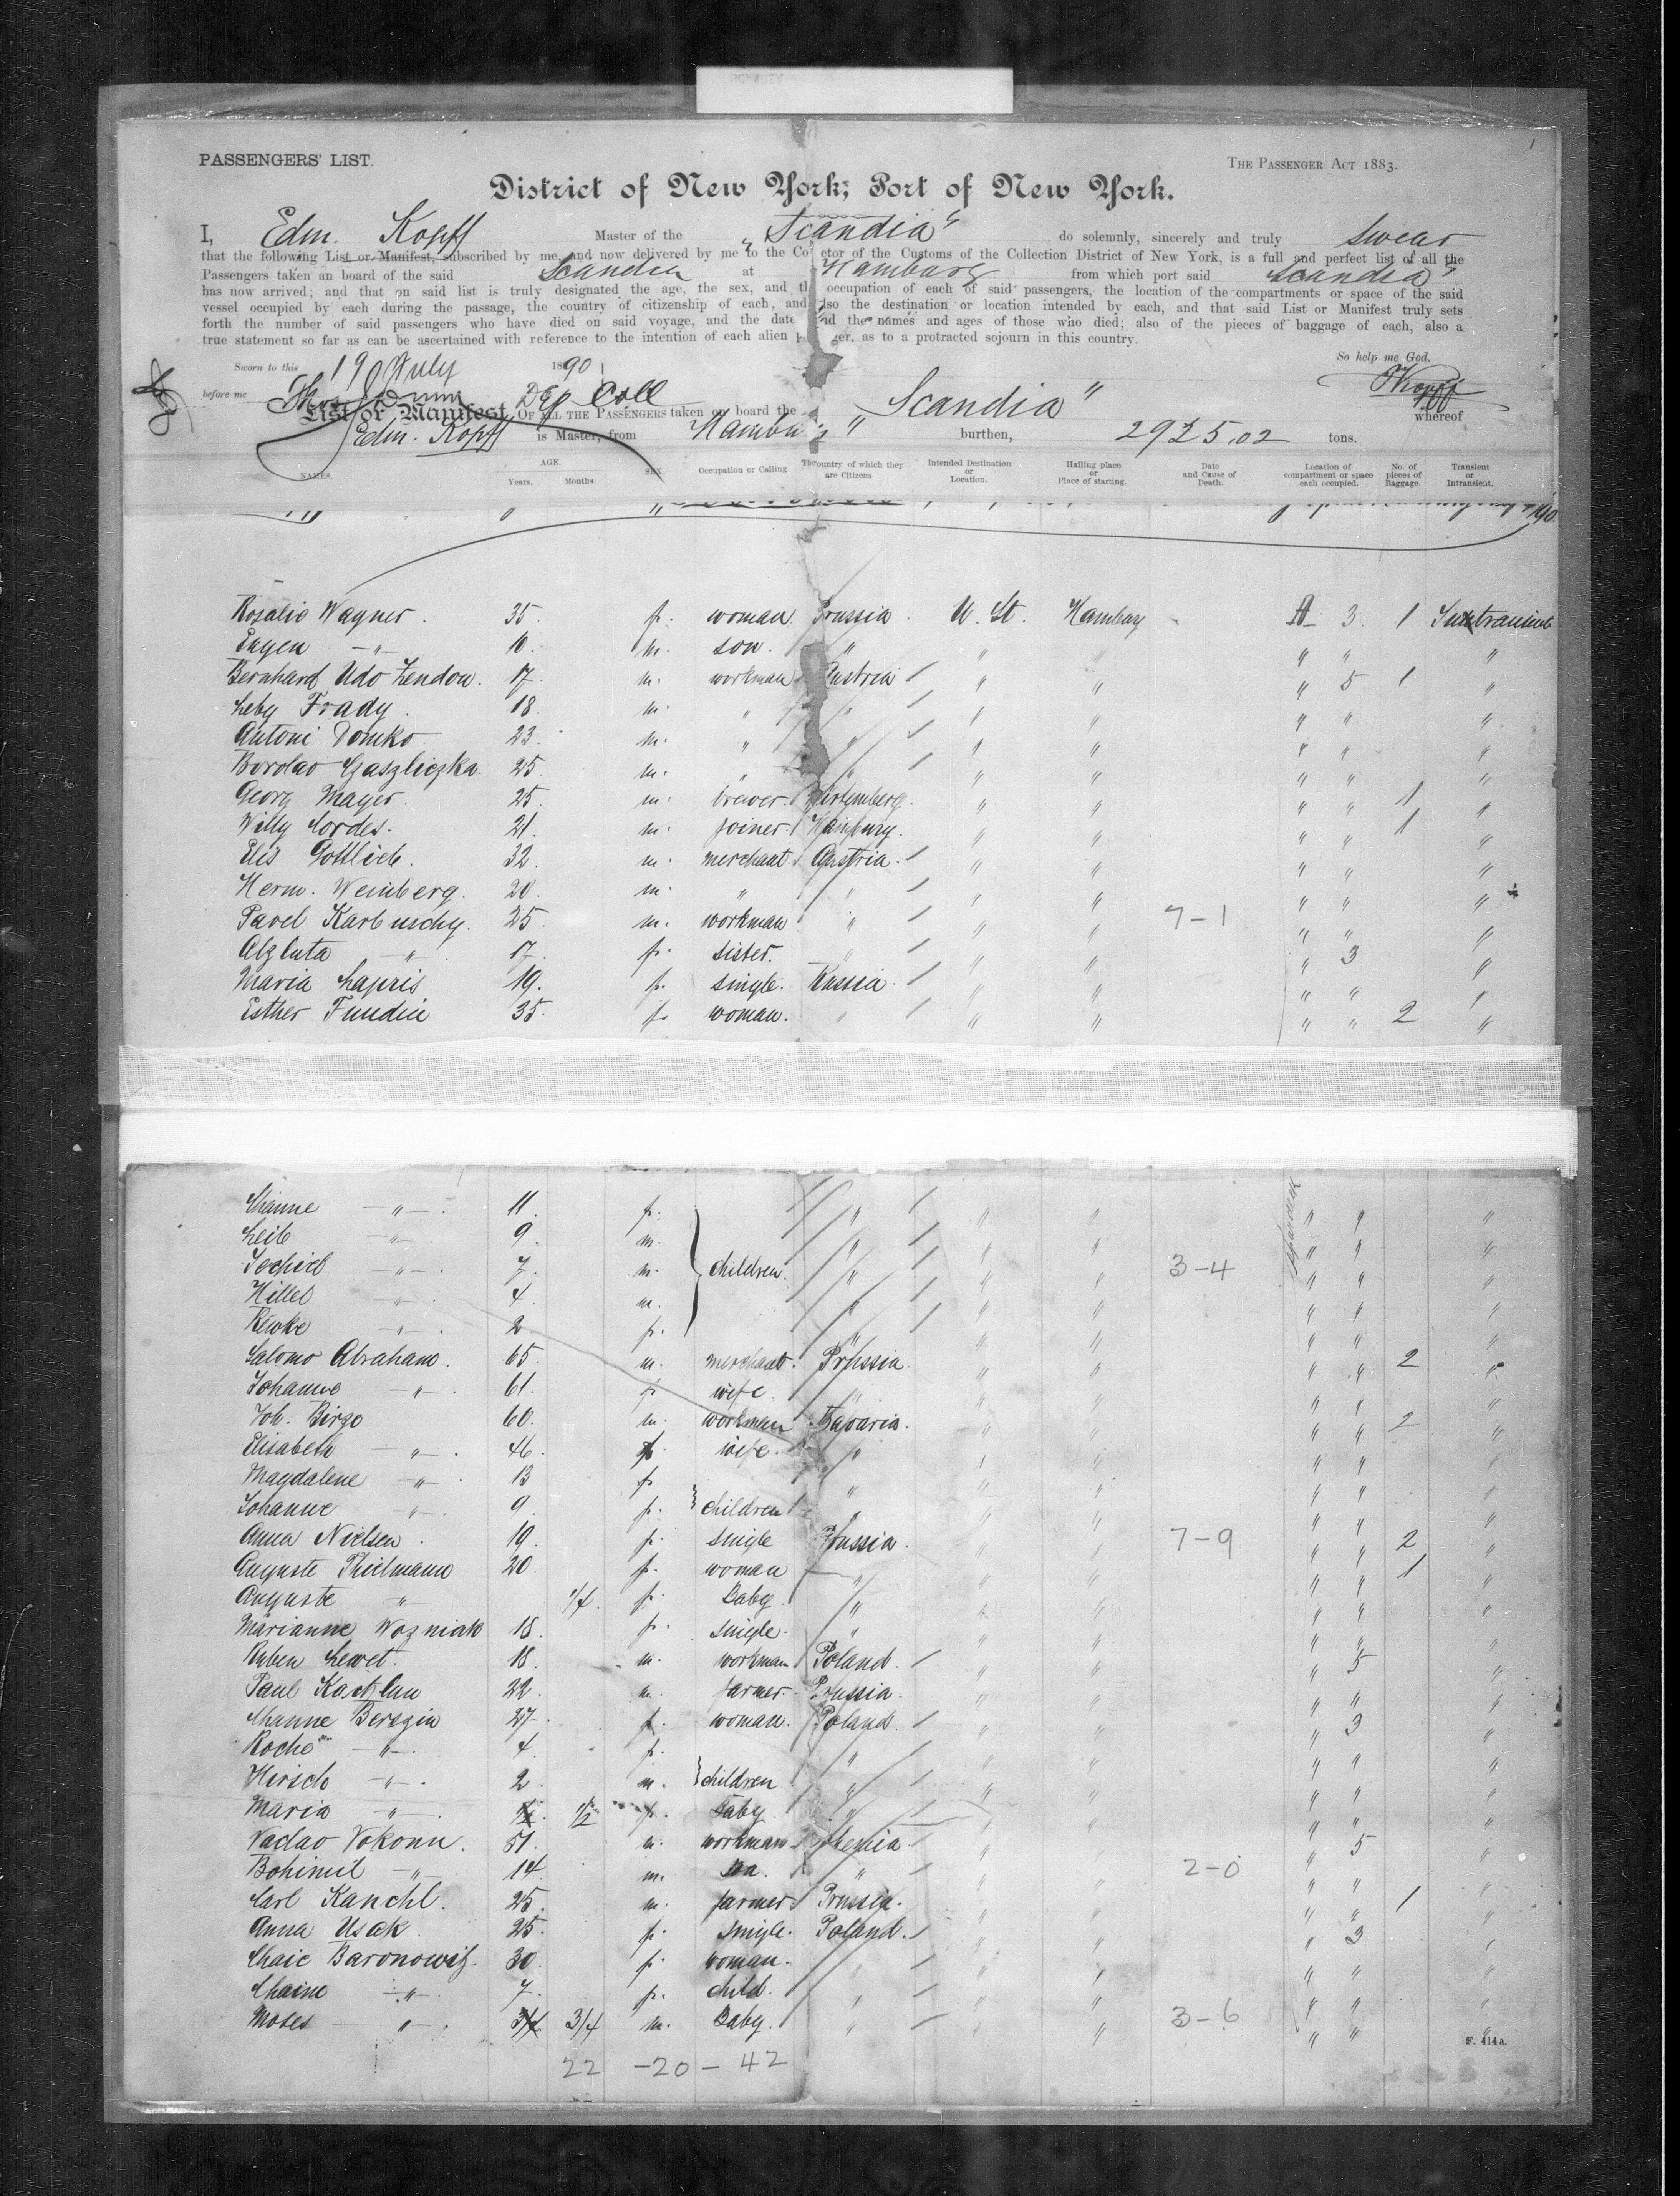 PASSENGERS' LIST. THE PASSENGER ACT 1883.
District of New York, Port of New York.
I, Edm. Kopff Master of the "Scandia" do solemnly, sincerely and truly swear
that the following List or Manifest, subscribed by me, and now delivered by me to the Co etor of the Customs of the Collection District of New York, is a full and perfect list of all the
Passengers taken an board of the said Scandia at Hamburg from which port said Scandia"
has now arrived; and that on said list is truly designated the age, the sex, and th occupation of each of said passengers, the location of the compartments or space of the said
vessel occupied by each during the passage, the country of citizenship of each, and also the destination or location intended by each, and that said List or Manifest truly sets
forth the number of said passengers who have died on said voyage, and the date nd the names and ages of those who died; also of the pieces of baggage of each, also a
true statement so far as can be ascertained with reference to the intention of each alien p ger, as to a protracted sojourn in this country.
Sworn to this 19 July 1890 So help me God.
before me Thos Dunn Dep Coll Kopff
List or Manifest OF ALL THE PASSENGERS taken on board the Scandia" whereof
Edm. Kopff is Master, from Hamburg " burthen, 2925,02 tons.
NAMES. AGE. Years. Months. SEX. Occupation or Calling. The country of which they are Citizens Intended Destination or Location. Hailing place or Place of starting. Date and Cause of Death. Location of compartment or space each occupied. No. of pieces of Baggage. Transient or Intransient.
Rosalie Wagner. 35. f. woman. Prussia U. St. Hamburg A 3. 1
Eugen —"— 10. m. son. " " " " " "
Bernhard Udo 17. m. workman Austria / " " " 5 1 "
Leby Frady. 18. m. " " / " " " " "
Antoni Domko 23. m. " " / " " " " "
25. m. " " / " " " " "
Georg Mayer. 25. m. brewer. Würtemberg. " " " " 1 "
Willy Cordes. 21. m. joiner. Hamburg. " " " " 1 "
Elis Gottlieb. 32. m. merchant Austria. / " " " " "
Herm. Weinberg. 20. m. " " / " " " " "
Pavel Karbuschy. 25. m. workman " / " " 7-1 " " "
Alzbuta " 17. f. sister. " / " " " 3 "
Maria Lapris 19. f. single. Russia. / " " " " "
Esther Fundin 35. f. woman. " / " " " " 2 "
Channe —"—. 11. f. " / " " " " "
Leib —"— 9. m. " / " " " " "
—"—. 7. m. children. " / " " 3-4 " " "
Hillel —"—. 4. m. " / " " " " "
Riwke —"—. 2 f. " / " " " " "
Salomo Abraham. 65. m. merchant. Prussia. " " " " 2 "
Johanne —"—. 61. f. wife. " " " " " "
Joh. Birzo 60. m. workman Bavaria. " " " " 2 "
Elisabeth —"—. 46. f. wife. " " " " " "
Magdalene —"—. 13 f. " " " " " "
Johanne —"—. 9. f. children " " " " " "
Anna Nielsen. 19. f. single Prussia. " " 7-9 " " 2 "
Auguste Thielmann 20. f. woman " " " " " 1 "
Auguste " 1/4. f. Baby. " " " " " "
Marianne Wozniak 18. f. single. " " " " " "
Ruben Lewet. 18. m. workman Poland. / " " " 5 "
Paul 22. m. farmer. Prussia. " " " " "
Channe Berszin 27. f. woman. Poland. / " " " 3 "
Roche —"—. 4. f. " / " " " " "
Hirsch —"—. 2. m. children " / " " " " "
Maria —"—. 1/2 f. Baby " " " " " "
Vaclav Vokoun. 51. m. workman Bohemia / " " " 5 "
Bohimil —"— 14. m. son. " / " " 2-0 " " "
Carl Kanchl. 25. m. farmer Prussia. " " " " 1 "
Anna Usak. 25. f. single. Poland. / " " " 3 "
Chaie Baronowitz. 30. f. woman. " / " " " " "
Chaim —"—. 7. f. child. " / " " " " "
Moses —"—. 3/4 3/4 m. Baby. " / " " 3-6 " " "
F. 414a.
22 -20 - 42